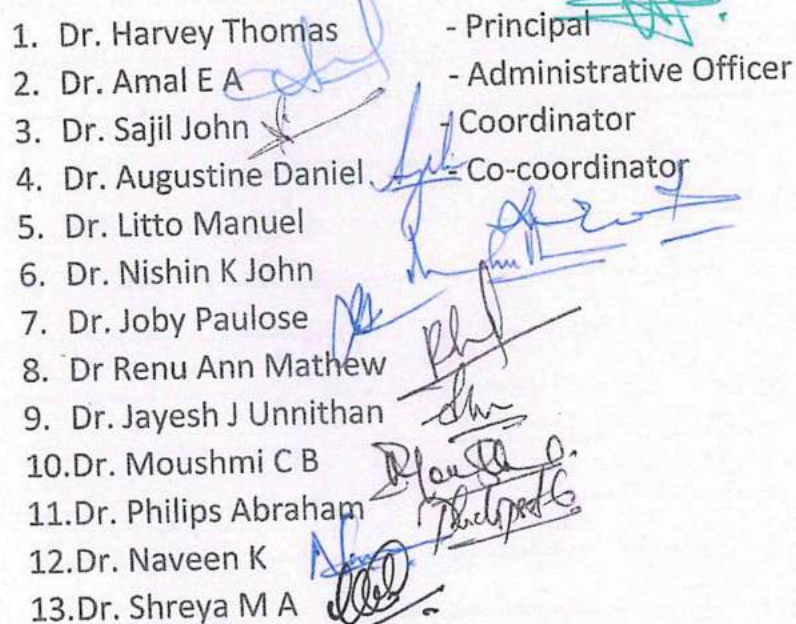 1. Dr. Harvey Thomas - Principal
2. Dr. Amal E A - Administrative Officer
3. Dr. Sajil John - Coordinator
4. Dr. Augustine Daniel - Co-coordinator
5. Dr. Litto Manuel
6. Dr. Nishin K John
7. Dr. Joby Paulose
8. Dr Renu Ann Mathew
9. Dr. Jayesh J Unnithan
10.Dr. Moushmi C B
11.Dr. Philips Abraham
12.Dr. Naveen K
13.Dr. Shreya M A